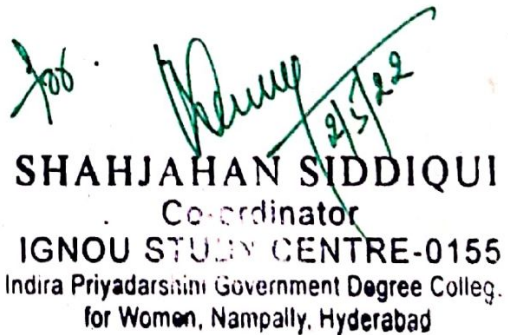 for
2/5/22
SHAHJAHAN SIDDIQUI
Co-ordinator
IGNOU STUDY CENTRE-0155
Indira Priyadarshini Government Degree Colleg.
for Women, Nampally, Hyderabad